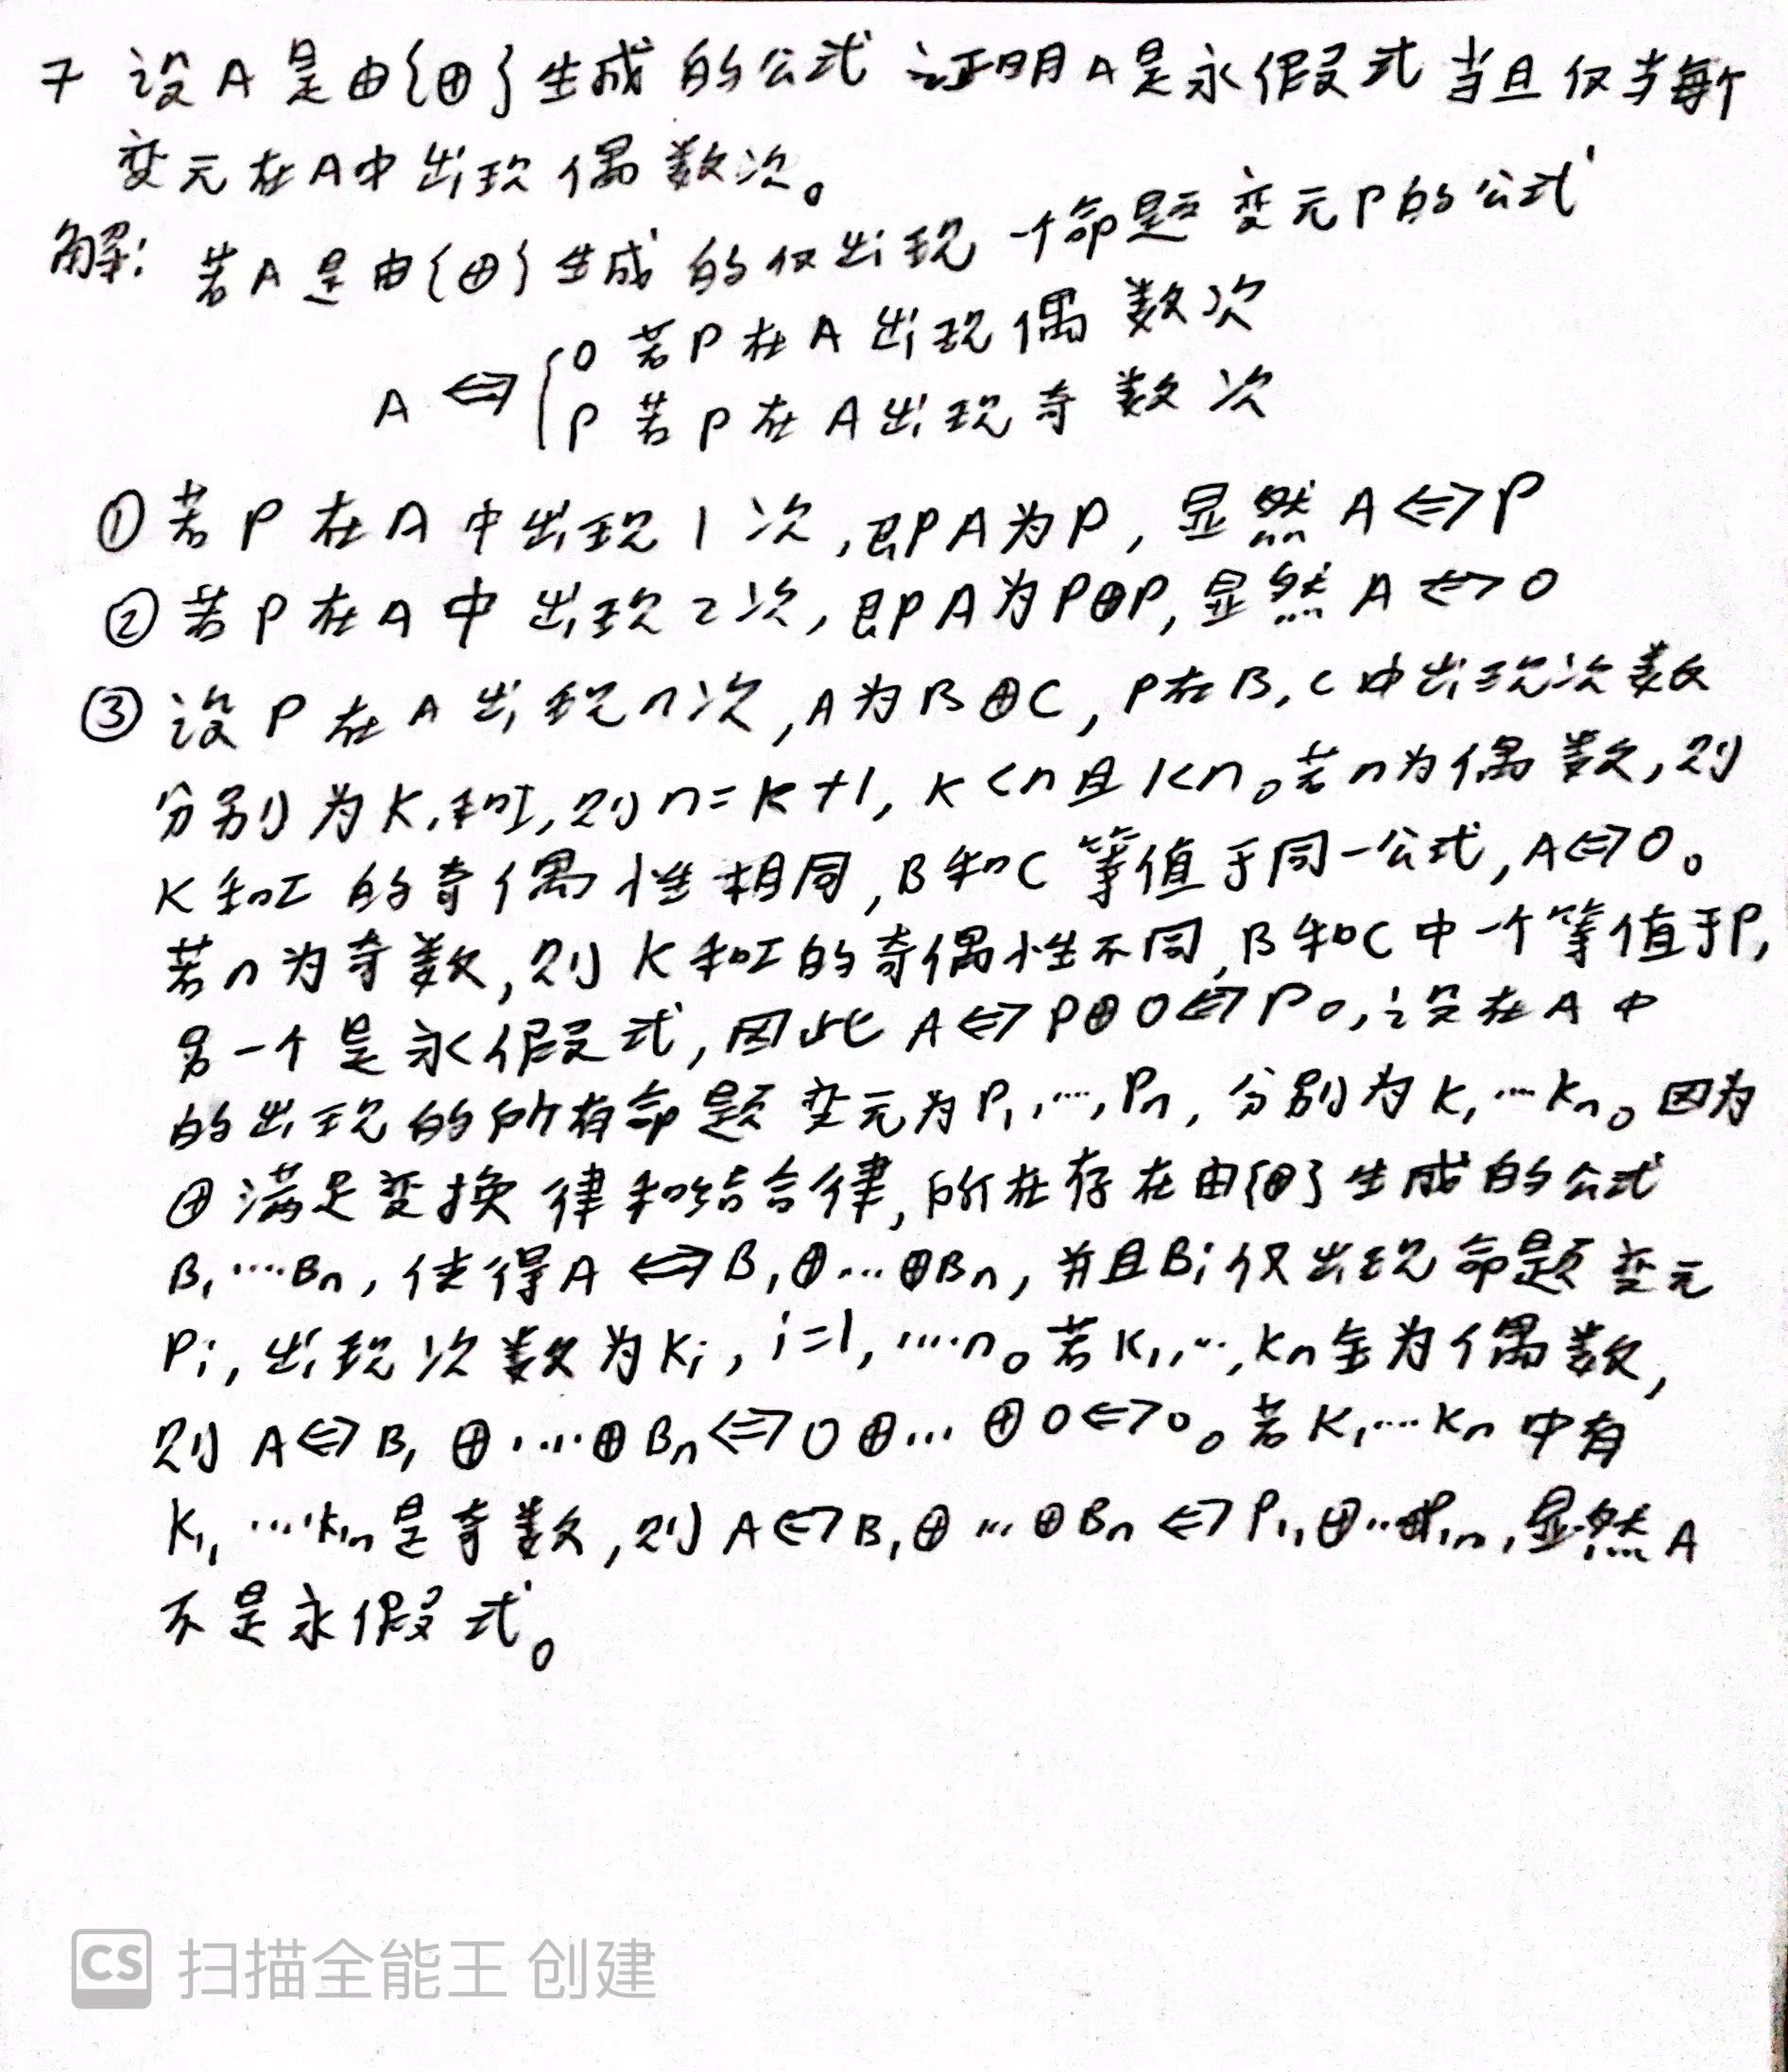 7 设A是由{⊕}生成的公式 证明A是永假式当且仅当每个
变元在A中出现偶数次。
解: 若A是由{⊕}生成的仅出现一个命题变元P的公式
A ⇔ { 0 若P在A出现偶数次
P 若P在A出现奇数次
①若P在A中出现1次,即A为P,显然A⇔P
②若P在A中出现2次,即A为P⊕P,显然A⇔0
③设P在A出现n次,A为B⊕C,P在B,C中出现次数
分别为K,和I,则n=K+1,K<n且1<n。若n为偶数,则
K和I的奇偶性相同,B和C等值于同一公式,A⇔0。
若n为奇数,则K和I的奇偶性不同,B和C中一个等值于P,
另一个是永假式,因此A⇔P⊕0⇔P。,设在A中
的出现的所有命题变元为P1,…,Pn,分别为K1…Kn。因为
⊕满足变换律和结合律,所在存在由{⊕}生成的公式
B1…Bn,使得A⇔B1⊕…⊕Bn,并且Bi仅出现命题变元
Pi,出现次数为Ki,i=1,…n。若K1,…,Kn全为偶数,
则A⇔B1⊕…⊕Bn⇔0⊕…⊕0⇔0。若K1…Kn中有
K11…k1n是奇数,则A⇔B1⊕…⊕Bn⇔P11⊕…⊕P1n,显然A
不是永假式。
CS 扫描全能王 创建